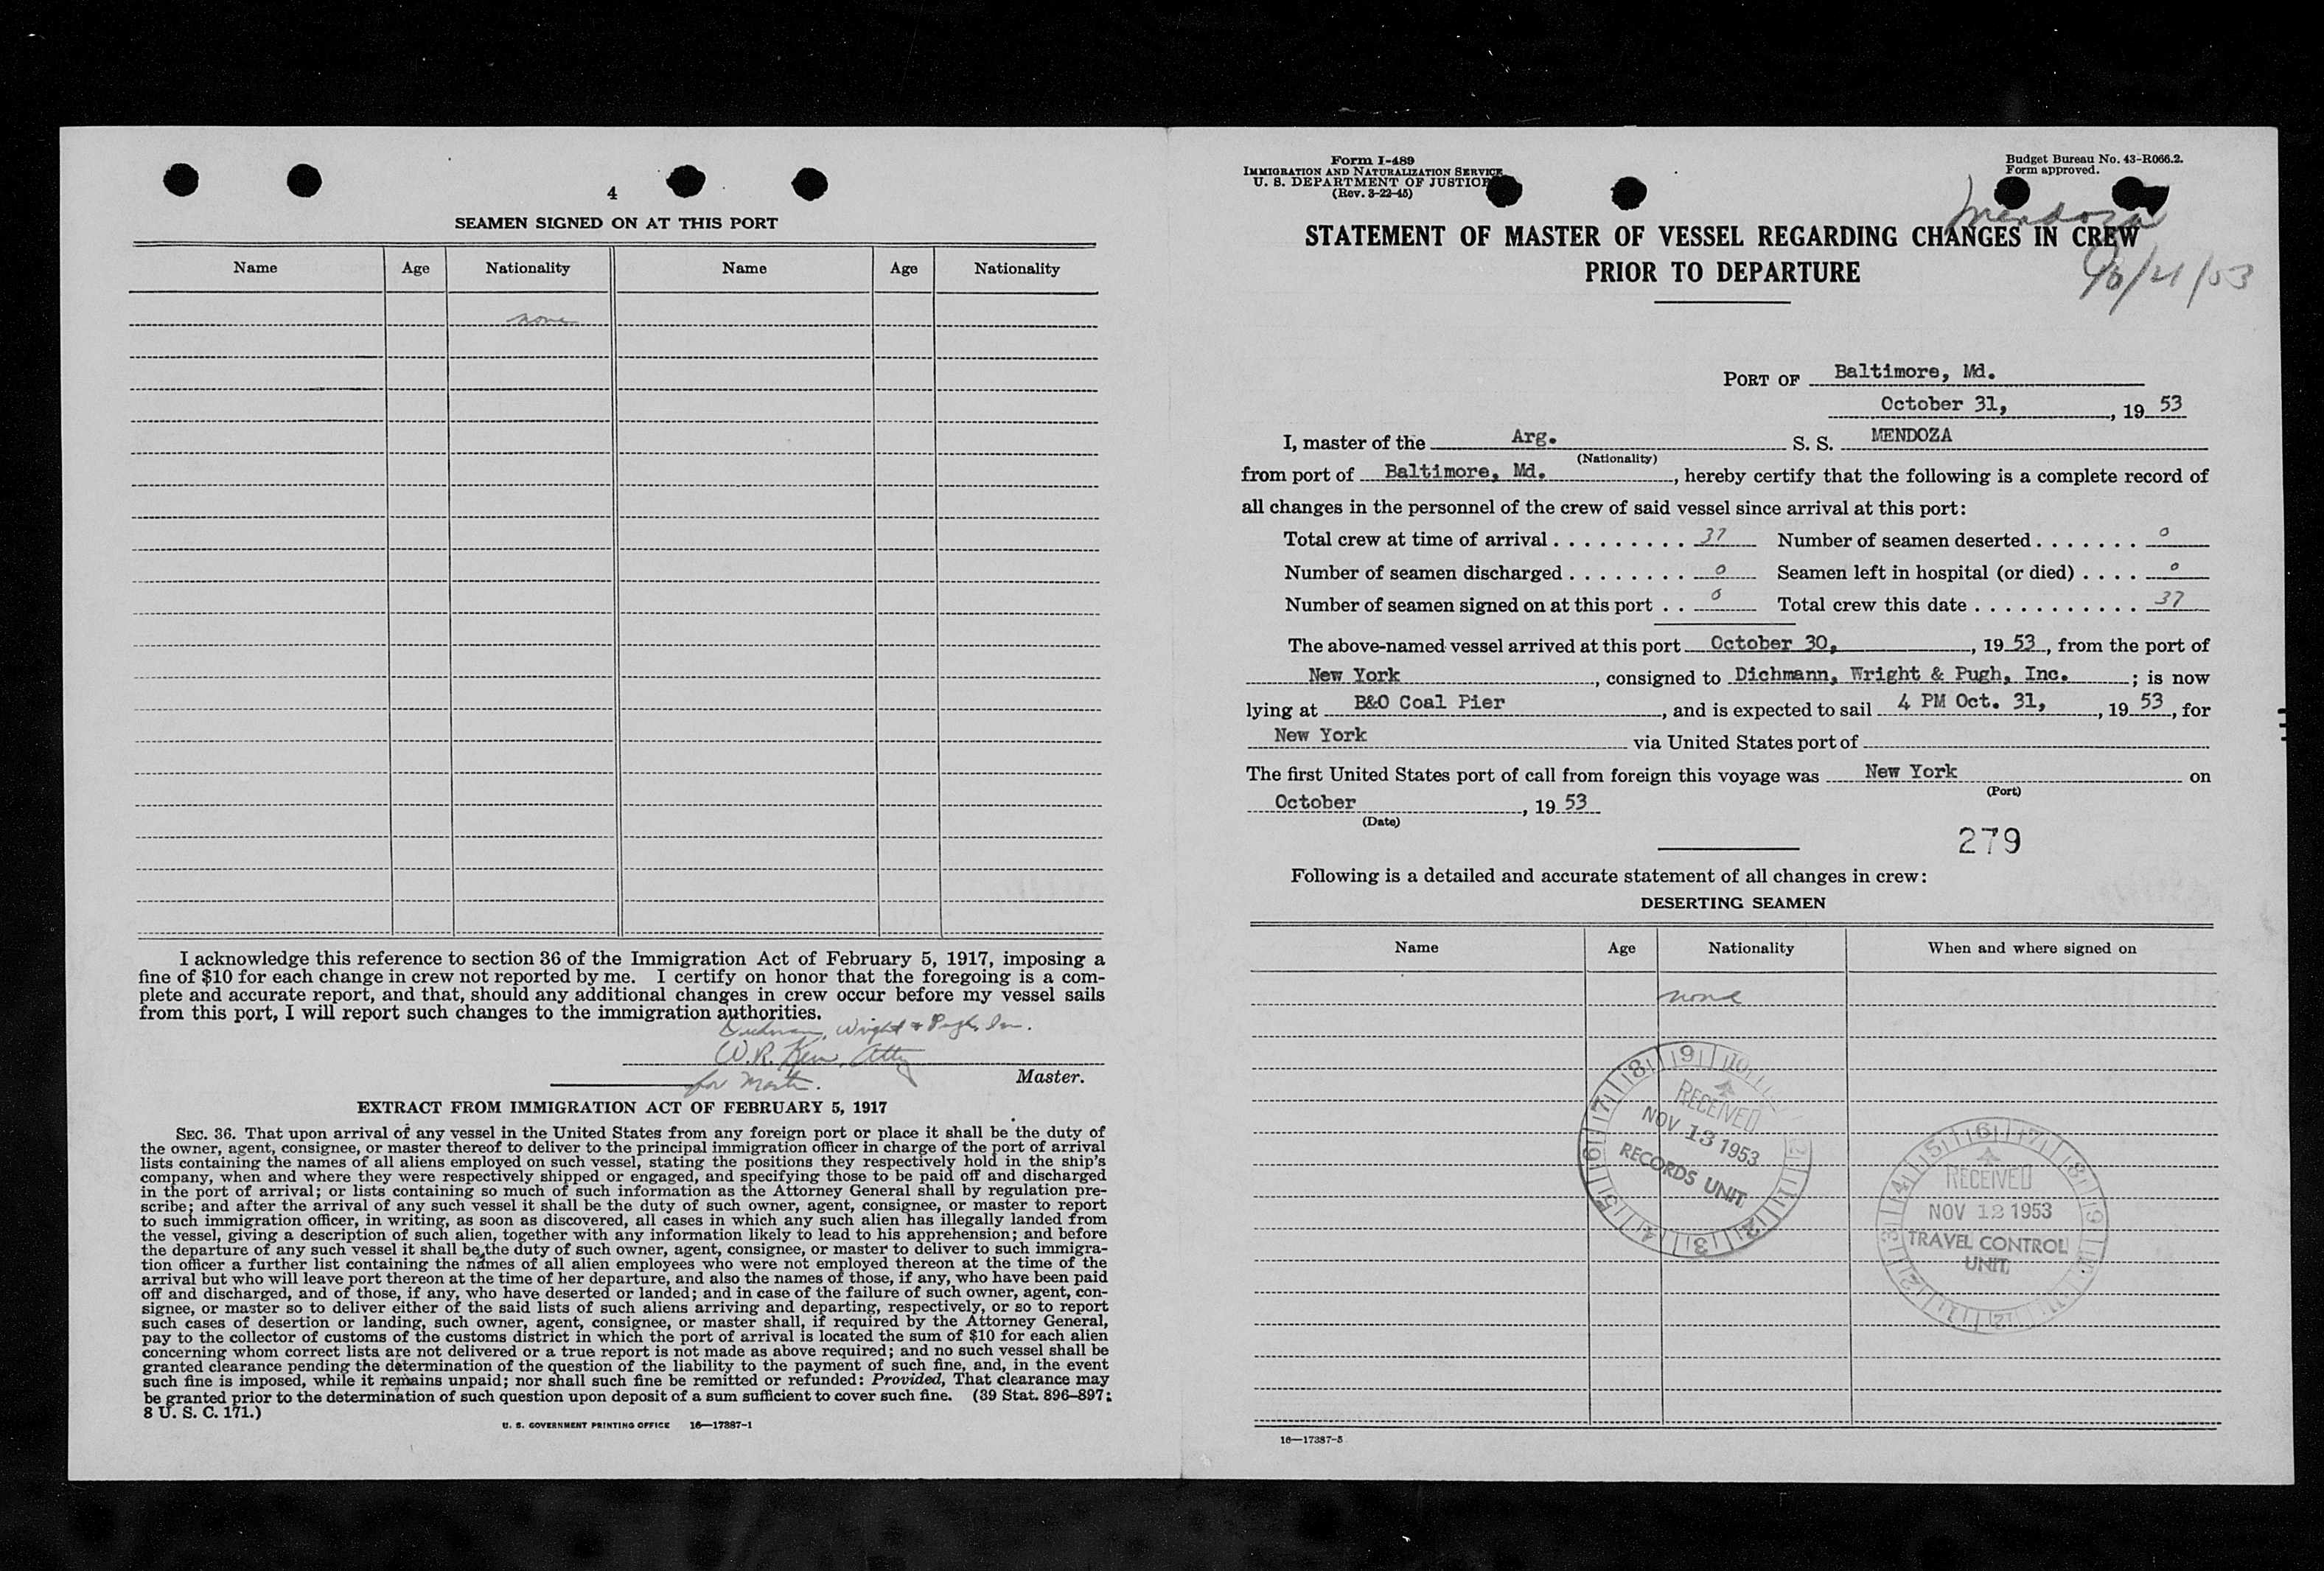 4
SEAMEN SIGNED ON AT THIS PORT
Name Age Nationality Name Age Nationality
none
I acknowledge this reference to section 36 of the Immigration Act of February 5, 1917, imposing a
fine of $10 for each change in crew not reported by me. I certify on honor that the foregoing is a com-
plete and accurate report, and that, should any additional changes in crew occur before my vessel sails
from this port, I will report such changes to the immigration authorities.
Wright & Pugh, Inc.
W. R. Atty
for Master.
Master.
EXTRACT FROM IMMIGRATION ACT OF FEBRUARY 5, 1917
SEC. 36. That upon arrival of any vessel in the United States from any foreign port or place it shall be the duty of
the owner, agent, consignee, or master thereof to deliver to the principal immigration officer in charge of the port of arrival
lists containing the names of all aliens employed on such vessel, stating the positions they respectively hold in the ship's
company, when and where they were respectively shipped or engaged, and specifying those to be paid off and discharged
in the port of arrival; or lists containing so much of such information as the Attorney General shall by regulation pre-
scribe; and after the arrival of any such vessel it shall be the duty of such owner, agent, consignee, or master to report
to such immigration officer, in writing, as soon as discovered, all cases in which any such alien has illegally landed from
the vessel, giving a description of such alien, together with any information likely to lead to his apprehension; and before
the departure of any such vessel it shall be the duty of such owner, agent, consignee, or master to deliver to such immigra-
tion officer a further list containing the names of all alien employees who were not employed thereon at the time of the
arrival but who will leave port thereon at the time of her departure, and also the names of those, if any, who have been paid
off and discharged, and of those, if any, who have deserted or landed; and in case of the failure of such owner, agent, con-
signee, or master so to deliver either of the said lists of such aliens arriving and departing, respectively, or so to report
such cases of desertion or landing, such owner, agent, consignee, or master shall, if required by the Attorney General,
pay to the collector of customs of the customs district in which the port of arrival is located the sum of $10 for each alien
concerning whom correct lists are not delivered or a true report is not made as above required; and no such vessel shall be
granted clearance pending the determination of the question of the liability to the payment of such fine, and, in the event
such fine is imposed, while it remains unpaid; nor shall such fine be remitted or refunded: Provided, That clearance may
be granted prior to the determination of such question upon deposit of a sum sufficient to cover such fine. (39 Stat. 896–897;
8 U. S. C. 171.)
U. S. GOVERNMENT PRINTING OFFICE 16—17387-1
Form I-489
IMMIGRATION AND NATURALIZATION SERVICE
U. S. DEPARTMENT OF JUSTICE
(Rev. 3-22-45)
Budget Bureau No. 43-R066.2.
Form approved.
Mendoza
STATEMENT OF MASTER OF VESSEL REGARDING CHANGES IN CREW
PRIOR TO DEPARTURE
PORT OF Baltimore, Md.
October 31, , 19 53
I, master of the Arg. S. S. MENDOZA
(Nationality)
from port of Baltimore, Md. , hereby certify that the following is a complete record of
all changes in the personnel of the crew of said vessel since arrival at this port:
Total crew at time of arrival . . . . . . . . . 37 Number of seamen deserted . . . . . . . 0
Number of seamen discharged . . . . . . . . 0 Seamen left in hospital (or died) . . . . 0
Number of seamen signed on at this port . . 0 Total crew this date . . . . . . . . . . . 37
The above-named vessel arrived at this port October 30, , 19 53, from the port of
New York , consigned to Dichmann, Wright & Pugh, Inc. ; is now
lying at B&O Coal Pier , and is expected to sail 4 PM Oct. 31, , 19 53, for
New York via United States port of
The first United States port of call from foreign this voyage was New York on
(Port)
October , 19 53
(Date)
279
Following is a detailed and accurate statement of all changes in crew:
DESERTING SEAMEN
Name Age Nationality When and where signed on
none
RECEIVED
NOV 13 1953
RECORDS UNIT
RECEIVED
NOV 1953
TRAVEL CONTROL
UNIT
16—17387-5